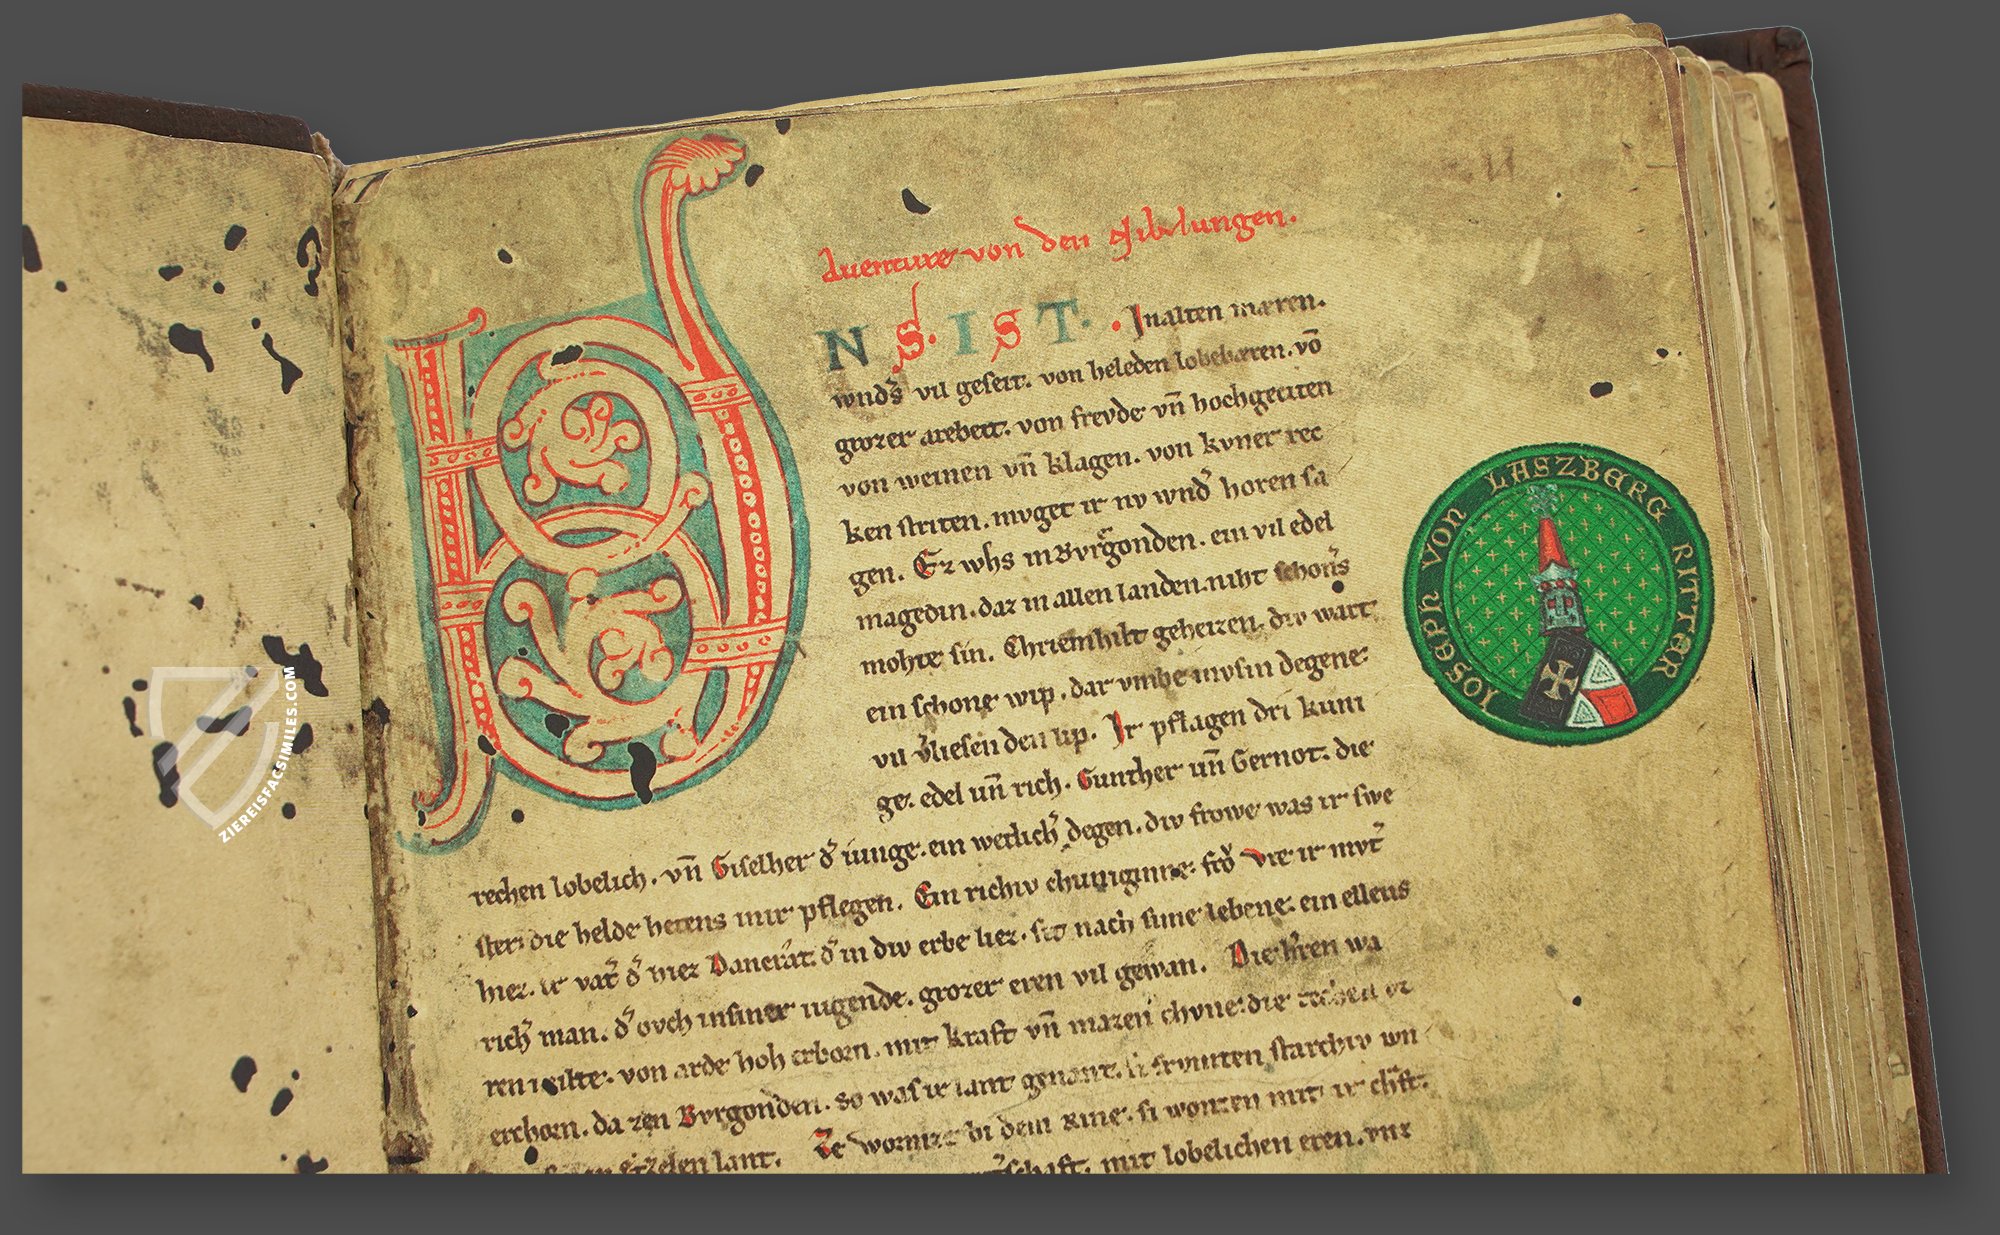 Auenture von den Nibelungen.
UNS. IST. Inalten mæren.
wnds̄ vil geseit. von heleden lobebæren. vō
grozer arebeit. von frevde vn̄ hochgeciten
von weinen vn̄ klagen. von kvner rec
ken striten. mvget ir nv wnd͛ horen sa
gen. Ez whs inBvrgonden. ein vil edel
magedin. daz in allen landen. niht schon͛s
mohte sin. Chriemhilt geheizen. div wart
ein schone wip. dar vmbe mvsin degene
vil v͛liesen den lip. Ir pflagen dri kuni
ge. edel un̄ rich. Gunther un̄ Gernot. die
rechen lobelich. vn̄ Giselher d͛ iunge. ein wetlich͛ degen. div frowe was ir swe
ster. die helde hetens inir pflegen. Ein richiv chuniginne. frō Vte ir mvt͛
hiez. ir vat͛ d͛ hiez Dancrat. d͛ in div erbe liez. sit nach sime lebene. ein ellens
rich͛ man. d͛ ovch insiner iugende. grozer eren vil gewan. Die h͛ren wa
ren milte. von arde hoh erborn. mit kraft vn̄ mazen chvne. die rechen vz
erchorn. da zen Bvrgonden. so was ir lant genant. si frvmten starchiv wn
Ezelen lant. Ze wormze bi dem Rine. si wonten mit ir chr̄ft.
schaft. mit lobelichen eren. vnz
IOSEPH VON LASZBERG RITTER
ZIEREISFACSIMILES.COM